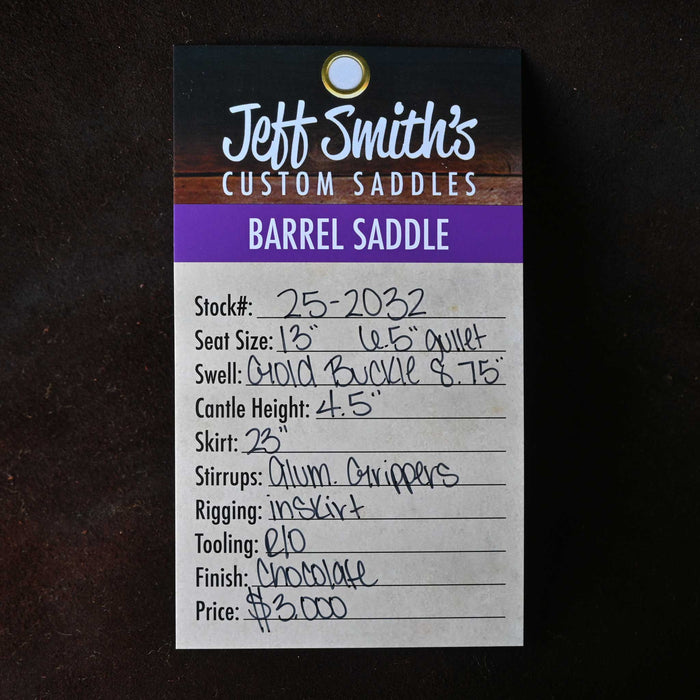 Jeff Smith's
CUSTOM SADDLES
BARREL SADDLE
Stock#: 25-2032
Seat Size: 13" 6.5" gullet
Swell: Gold Buckle 8.75"
Cantle Height: 4.5"
Skirt: 23"
Stirrups: Alum. Grippers
Rigging: inskirt
Tooling: R/O
Finish: Chocolate
Price: $3,000